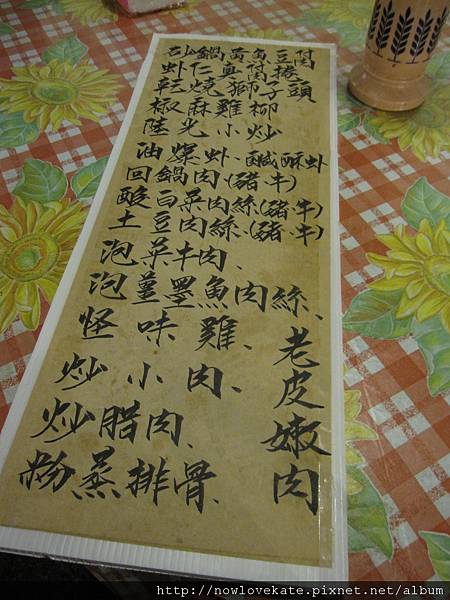 砂鍋黃魚豆腐
蝦仁與腐捲
乾燒獅子頭
椒麻雞柳
陸光小炒
油爆虾、鹹酥虾
回鍋肉(豬、牛)
酸白菜肉絲(豬、牛)
土豆肉絲(豬、牛)
泡菜牛肉、
泡薑墨魚肉絲、
怪味雞、
炒小肉、
炒腊肉、
粉蒸排骨、
老皮嫩肉
http://nowlovekate.pixnet.net/album